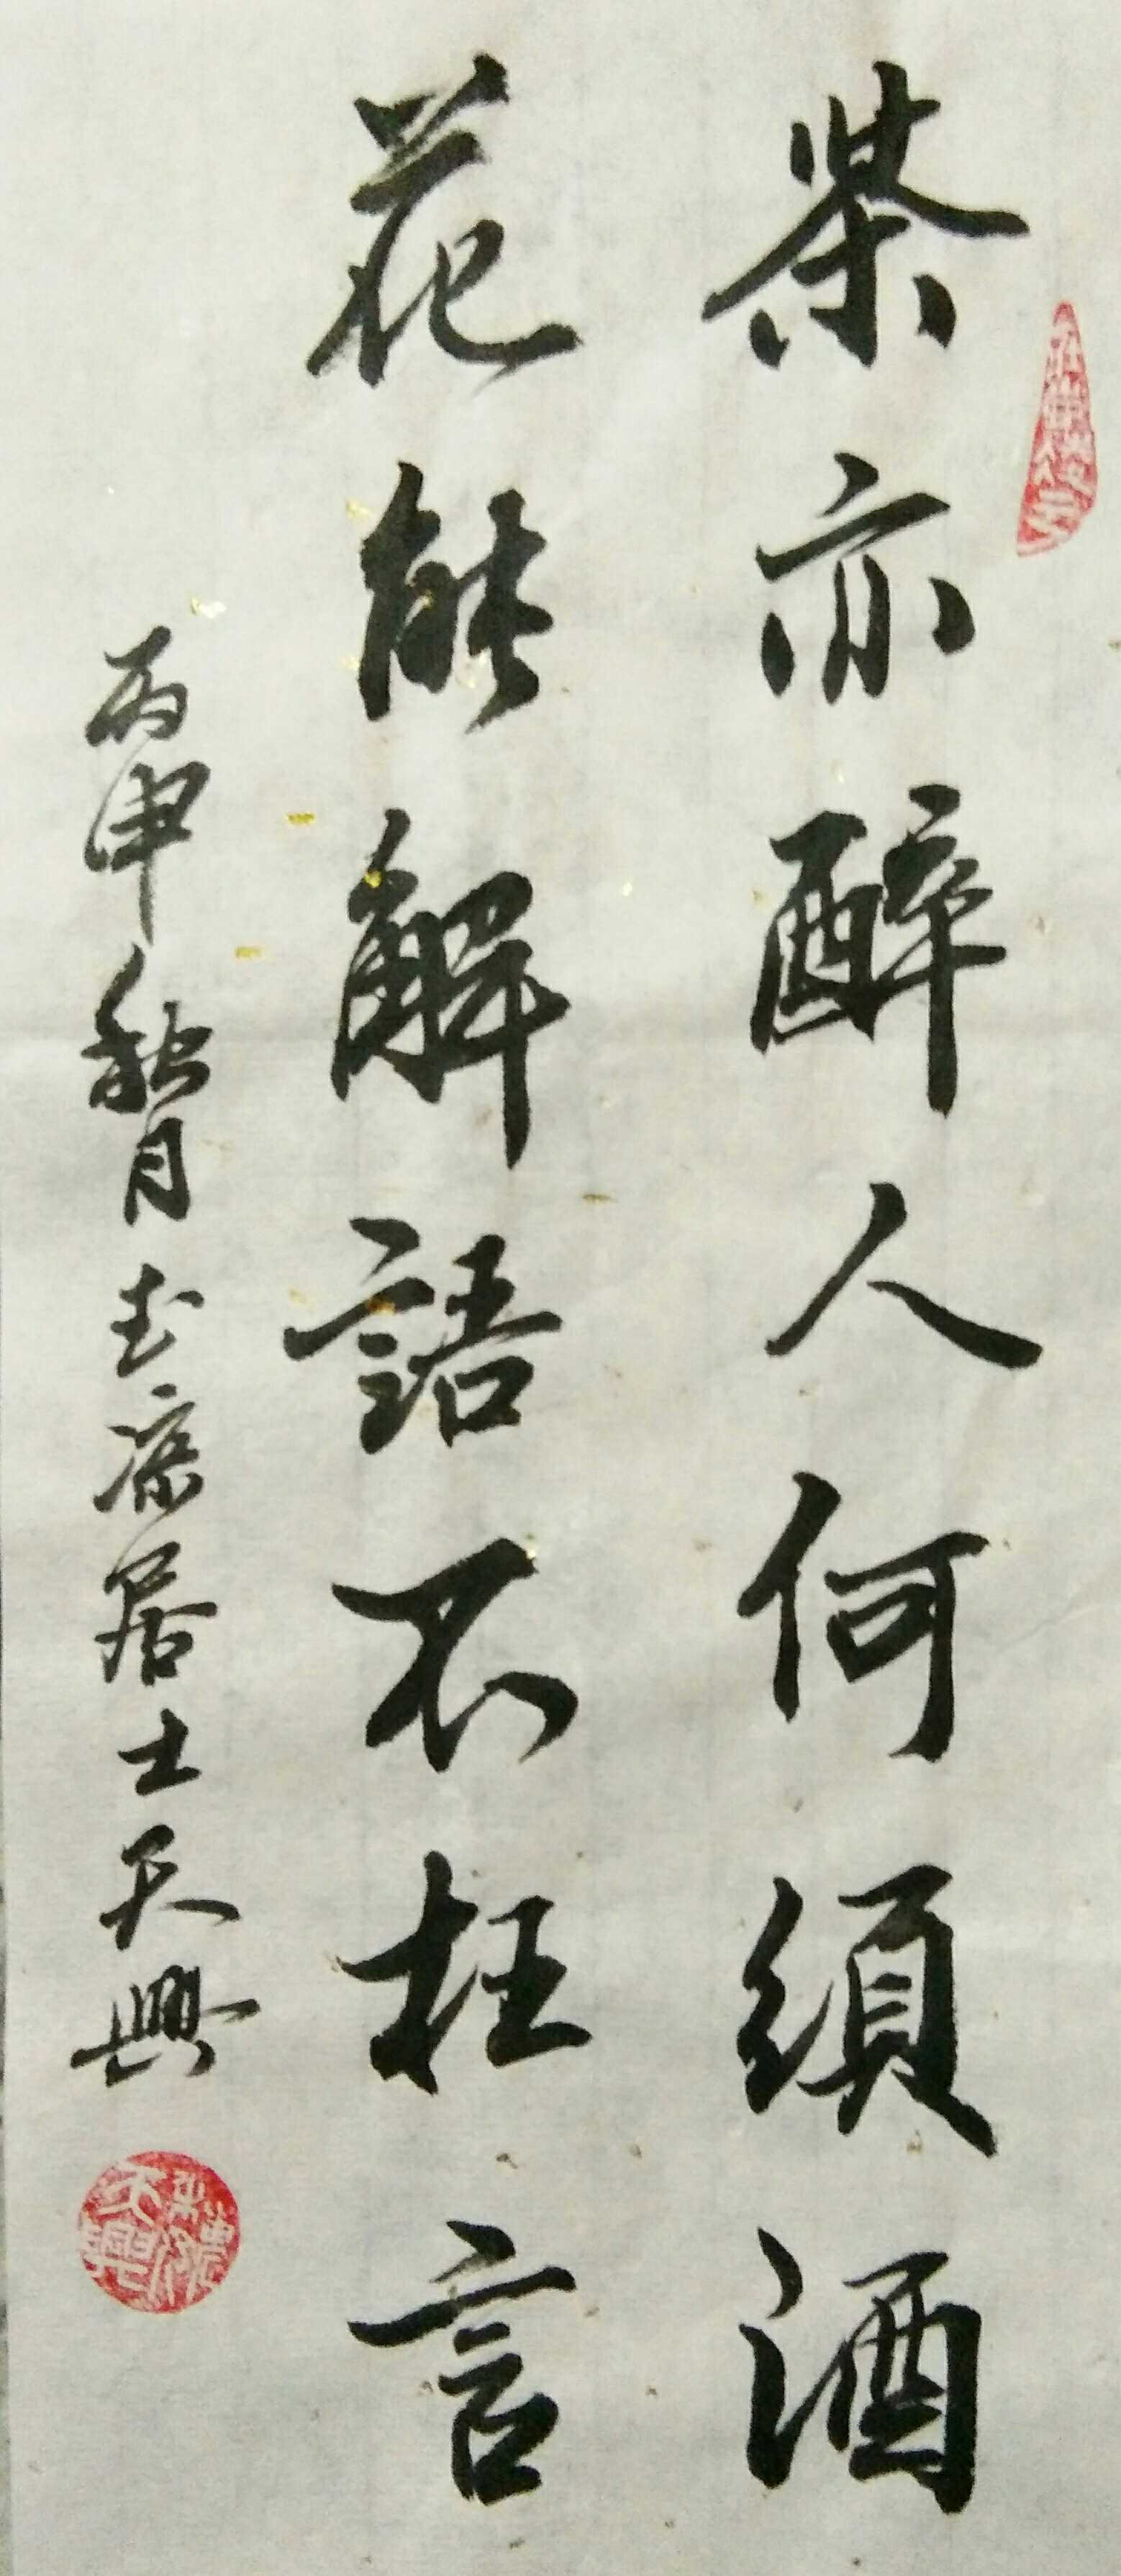 茶亦醉人何須酒
花能解語不枉言
丙申秋月居士天興